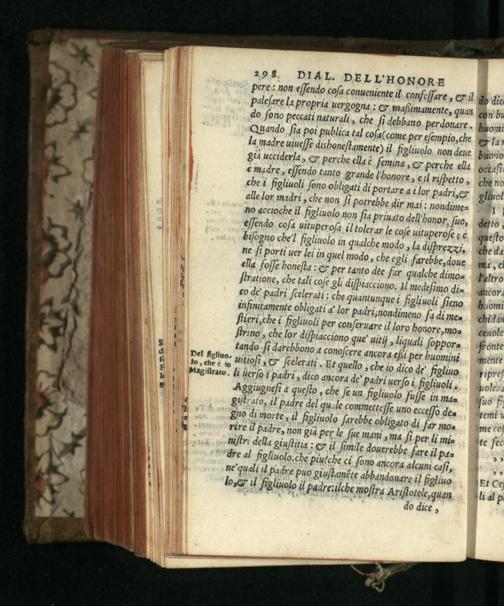 298. DIAL. DELL'HONORE
pere: non essendo cosa conueniente il confessare, & il
palesare la propria uergogna: & maßimamente, quan
do sono peccati naturali, che si debbano perdonare.
Quando sia poi publica tal cosa (come per esempio, che
la madre uiuesse dishonestamente) il figliuolo non deue
già ucciderla, & perche ella è femina, & perche ella
è madre, essendo tanto grande l'honore, e il rispetto,
che i figliuoli sono obligati di portare a i lor padri, &
alle lor madri, che non si potrebbe dir mai: nondime=
no accioche il figliuolo non sia priuato dell'honor suo,
essendo cosa uituperosa il tolerar le cose uituperose: è
bisogno che'l figliuolo in qualche modo, la disprezzi,
ne si porti uer lei in quel modo, che egli farebbe, doue
ella fosse honesta: & per tanto dee far qualche dimo=
stratione, che tali cose gli dispiacciono. Il medesimo di=
co de' padri scelerati: che quantunque i figliuoli sieno
infinitamente obligati a' lor padri, nondimeno fa di me=
stieri, che i figliuoli per conseruare il loro honore, mo=
strino, che lor dispiacciono que' uitij, liquali soppor=
tando si darebbono a conoscere ancora eßi per huomini
uitiosi, & scelerati. Et quello, che io dico de' figliuo
li uerso i padri, dico ancora de' padri uerso i figliuoli.
Del figliuo-
lo, che è in
Magistrato.
Aggiugnesi a questo, che se un figliuolo fusse in ma=
gistrato, il padre del quale commettesse uno eccesso de=
gno di morte, il figliuolo sarebbe obligato di far mo=
rire il padre, non già per le sue mani, ma si per li mi=
nistri della giustitia: & il simile douerebbe fare il pa=
dre al figliuolo. che più? che ci sono ancora alcuni casi,
ne' quali il padre puo giustamēte abbandonare il figliuo
lo, & il figliuolo il padre: ilche mostra Aristotele, quan
do dice,